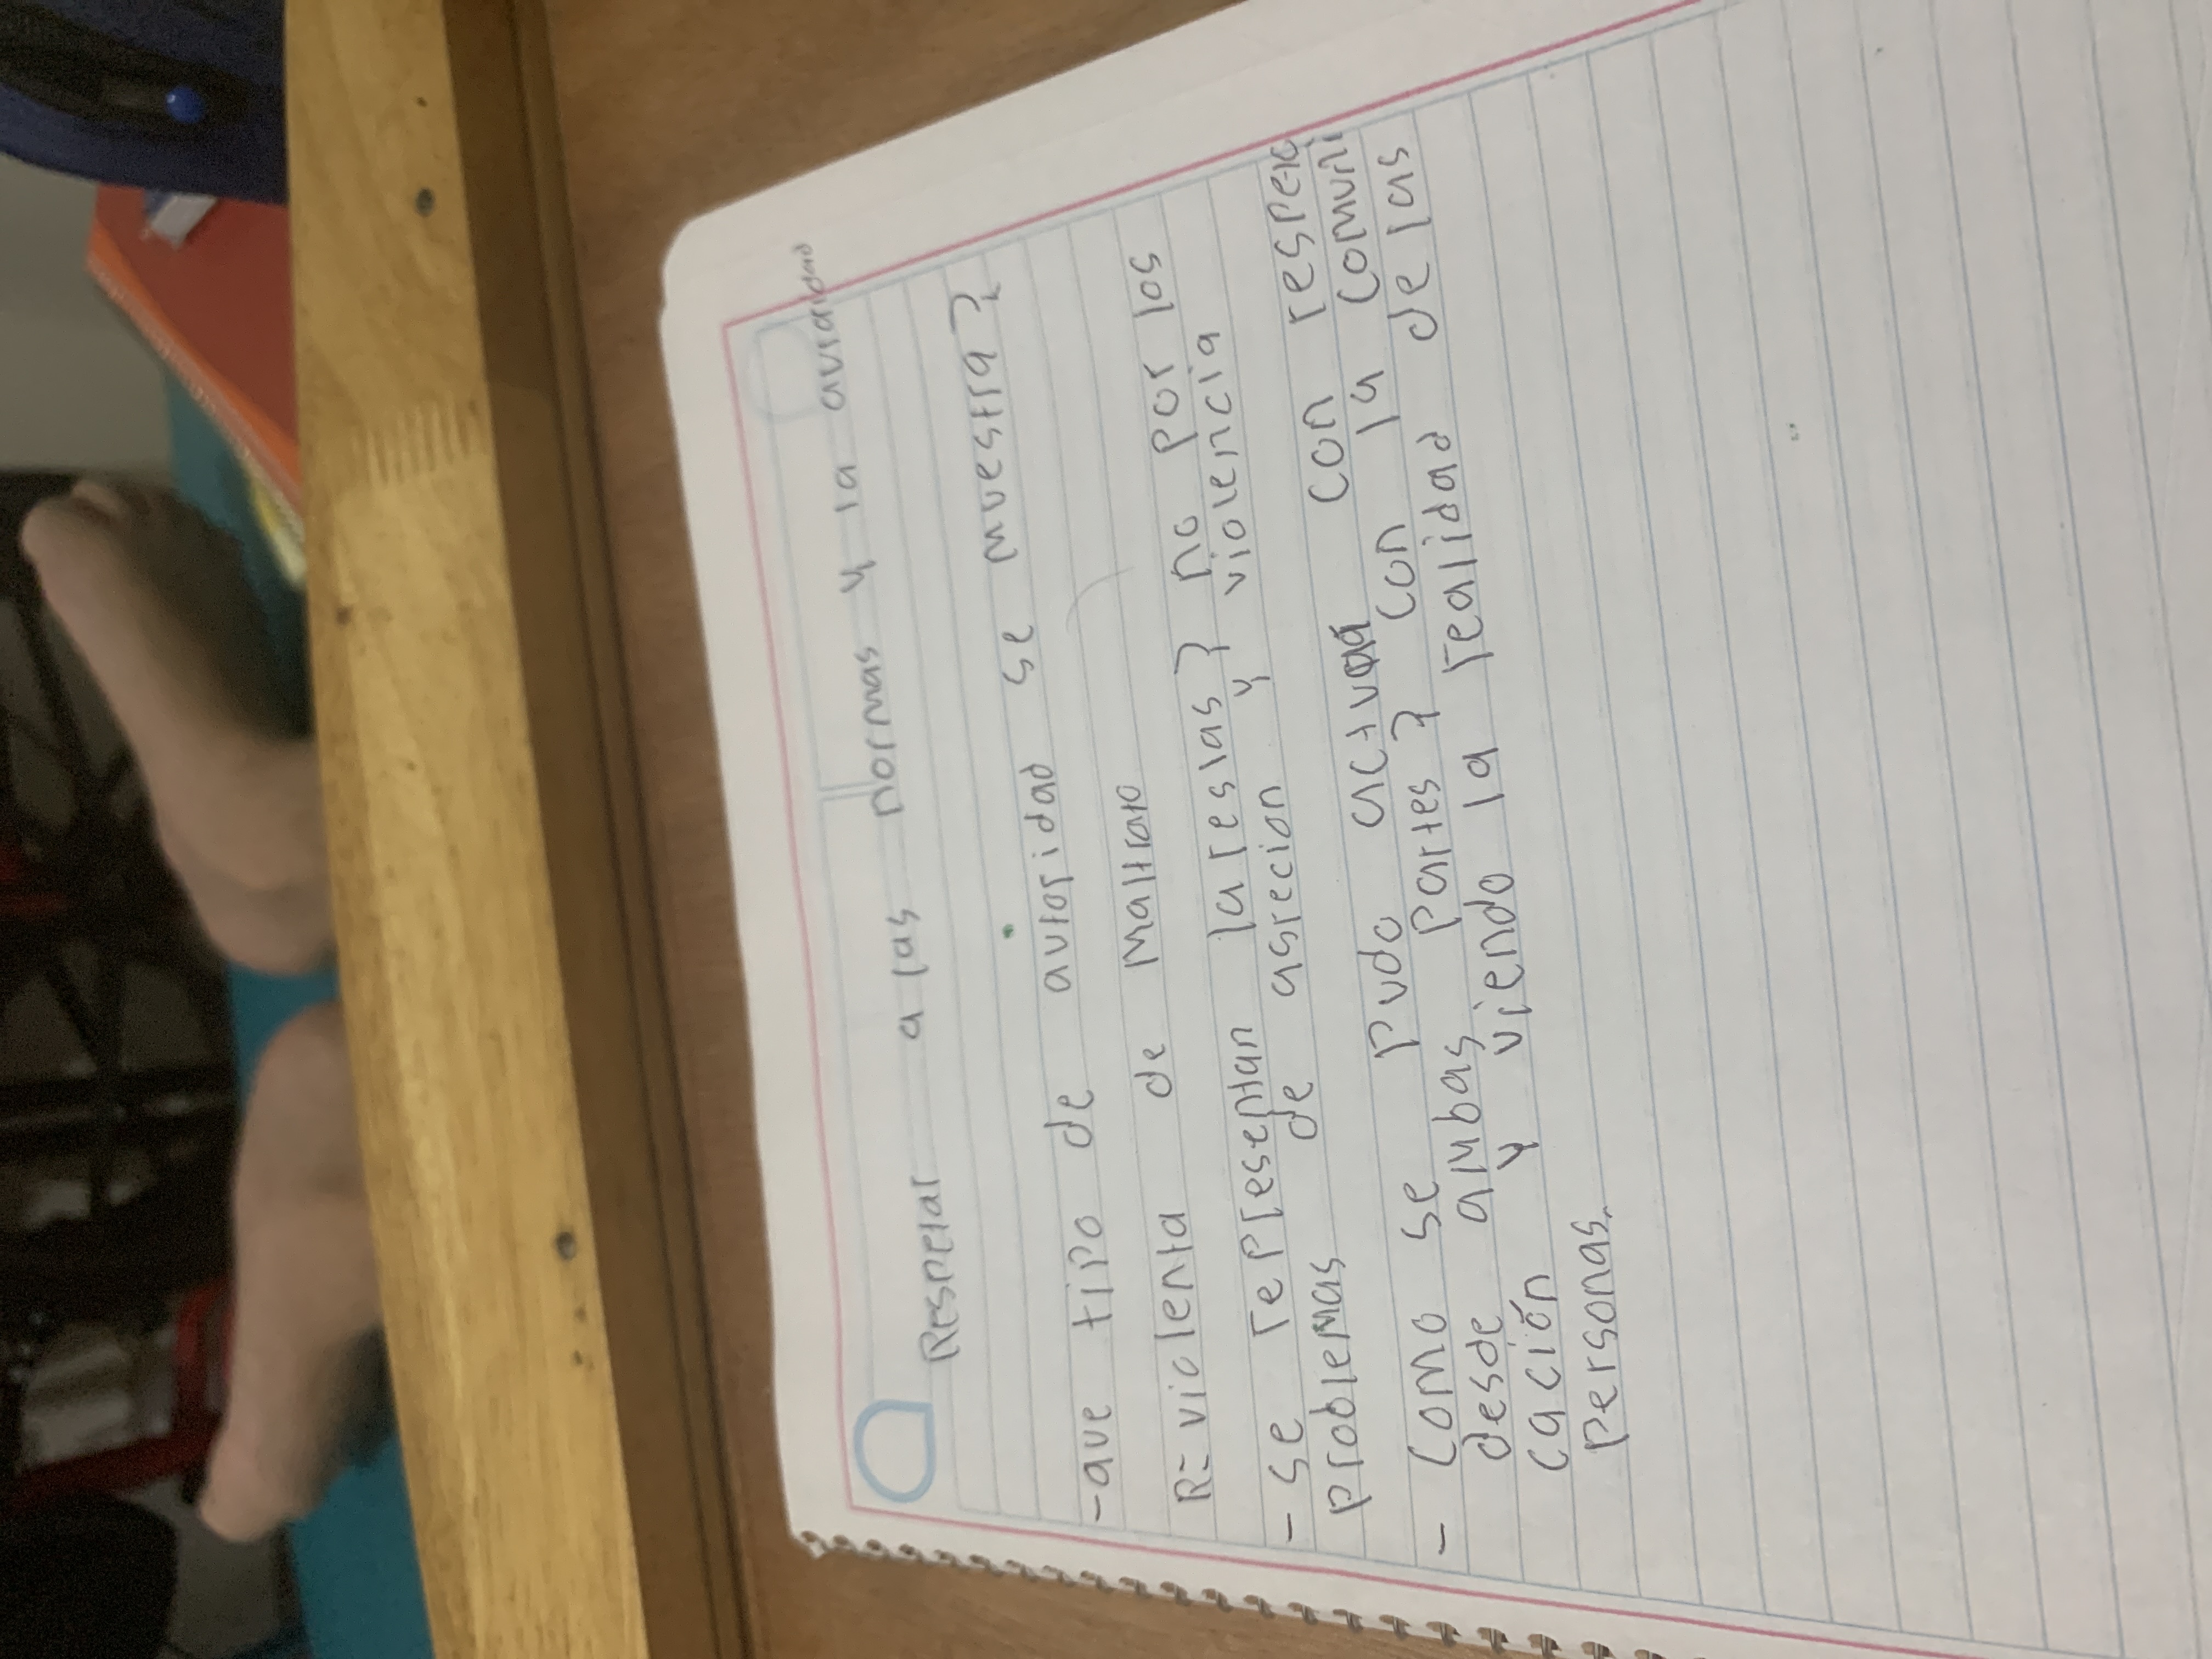 Respetar a las normas y la autoridad
-que tipo de autoridad se muestra?
R= violenta de maltrato
- se representan las reglas? no por los
problemas de agrecion y violencia
- Como se pudo actuar con respeto
desde ambas partes? con la comuni
cación y viendo la realidad de las
personas.